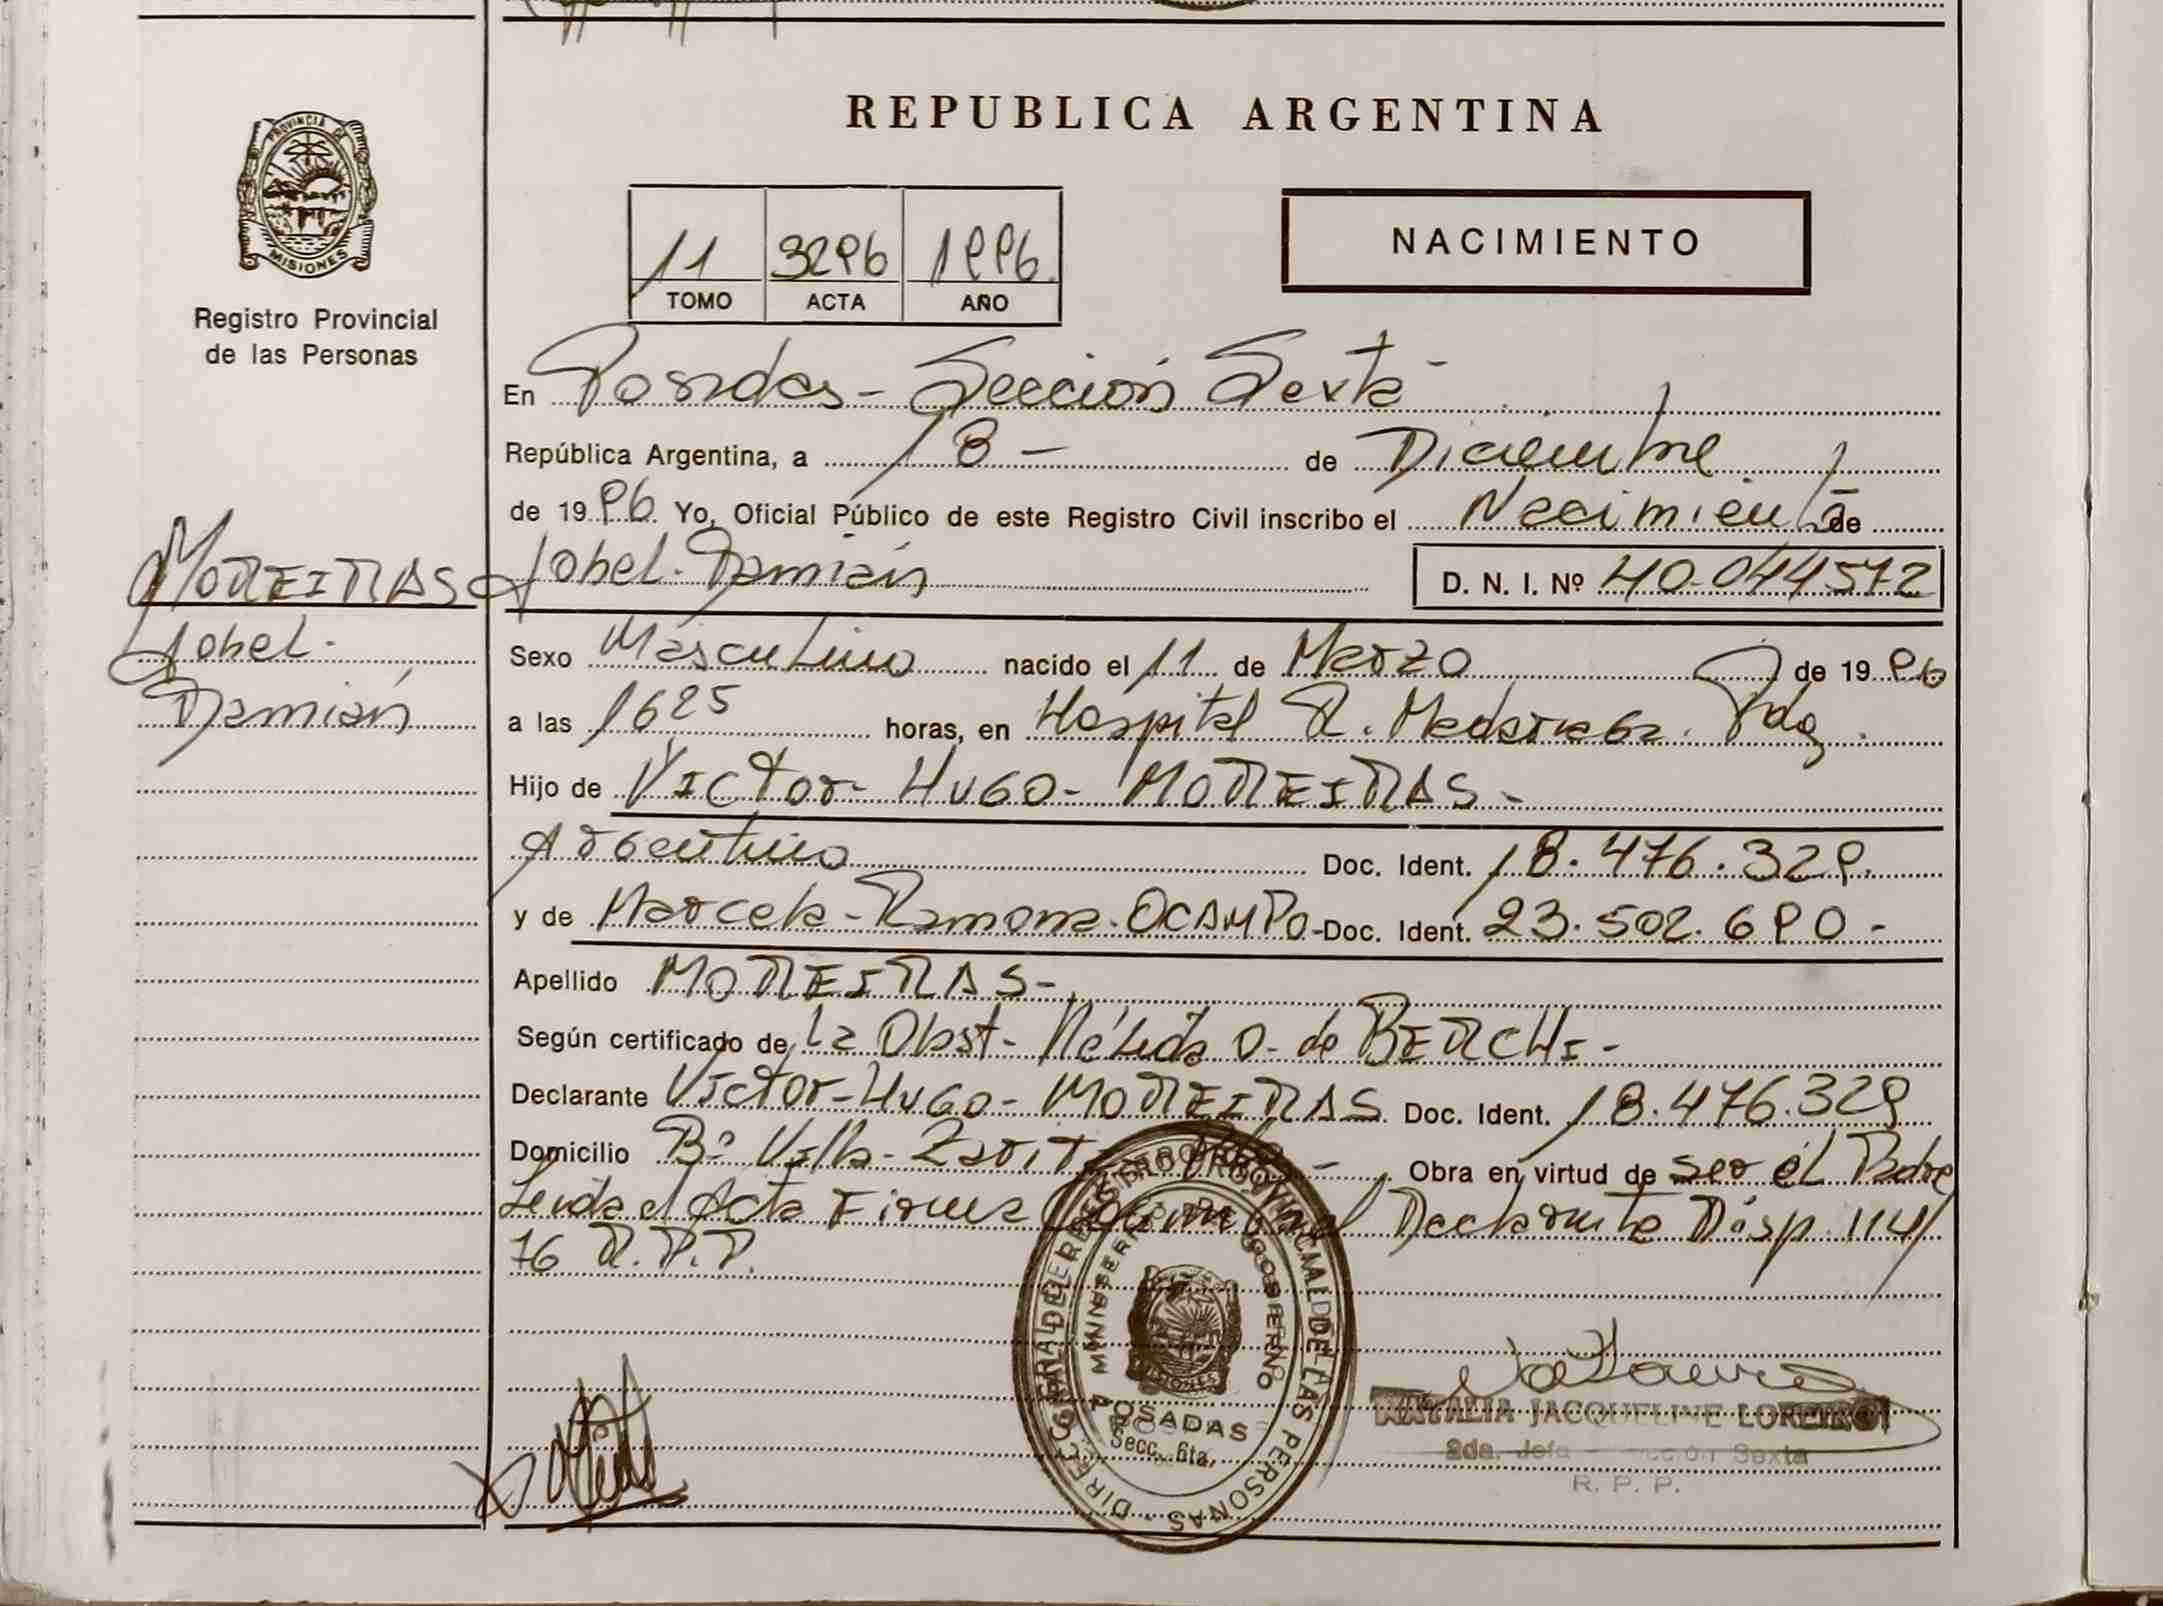 PROVINCIA DE
MISIONES
Registro Provincial
de las Personas
MOREIRAS
Jobel.
Damián
REPUBLICA ARGENTINA
11 3296 1996
TOMO ACTA AÑO
NACIMIENTO
En Posadas - Sección Sexta -
República Argentina, a 18 - de Diciembre
de 1996. Yo, Oficial Público de este Registro Civil inscribo el Nacimiento de
Jobel. Damián D. N. I. Nº 40.044572
Sexo Masculino nacido el 11 de Marzo de 1996
a las 1625 horas, en Hospital R. Madariaga. Pdas.
Hijo de Victor - Hugo - MOREIRAS -
Argentino Doc. Ident. 18.476.329.
y de Marcela - Ramona. OCAMPO - Doc. Ident. 23.502.690 -
Apellido MOREIRAS -
Según certificado de La Obst - Nélida O. de BERCHI -
Declarante Victor - Hugo - MOREIRAS Doc. Ident. 18.476.329
Domicilio Bº Villa - Obra en virtud de ser el Padre
Leída el Acta Firma el Declarante Disp. 114/
76 R.P.P.
DIRECC. GRAL. DEL REGISTRO PROVINCIAL DE LAS PERSONAS
MINISTERIO DE GOBIERNO
MISIONES
POSADAS
Secc. 6ta.
NATALIA JACQUELINE LOREIRO
2da. Jefa Sección Sexta
R. P. P.